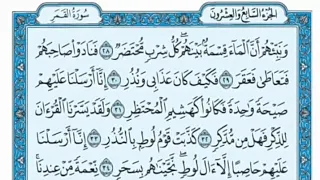 الجزء السابع والعشرون
سورة القمر
وَنَبِّئْهُمْ أَنَّ الْمَاءَ قِسْمَةٌ بَيْنَهُمْ كُلُّ شِرْبٍ مُحْتَضَرٌ ٢٨ فَنَادَوْا صَاحِبَهُمْ
فَتَعَاطَىٰ فَعَقَرَ ٢٩ فَكَيْفَ كَانَ عَذَابِي وَنُذُرِ ٣٠ إِنَّا أَرْسَلْنَا عَلَيْهِمْ
صَيْحَةً وَاحِدَةً فَكَانُوا كَهَشِيمِ الْمُحْتَظِرِ ٣١ وَلَقَدْ يَسَّرْنَا الْقُرْءَانَ
لِلذِّكْرِ فَهَلْ مِنْ مُدَّكِرٍ ٣٢ كَذَّبَتْ قَوْمُ لُوطٍ بِالنُّذُرِ ٣٣ إِنَّا أَرْسَلْنَا
عَلَيْهِمْ حَاصِبًا إِلَّا ءَالَ لُوطٍ نَجَّيْنَاهُمْ بِسَحَرٍ ٣٤ نِعْمَةً مِنْ عِنْدِنَا